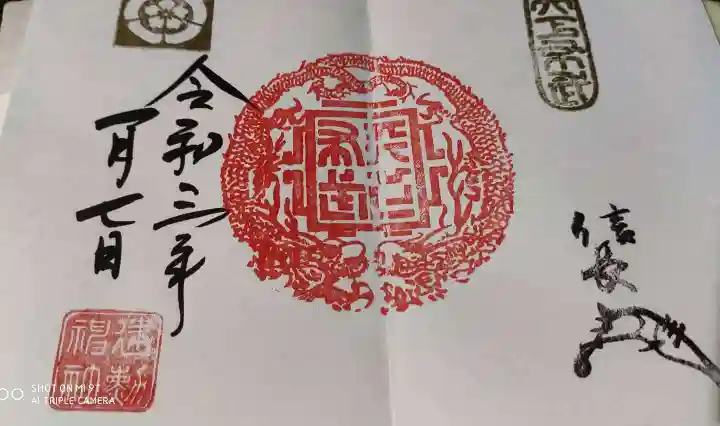 天下布武
信長
令和三年
一月七日
建勲神社
SHOT ON MI 9T
AI TRIPLE CAMERA